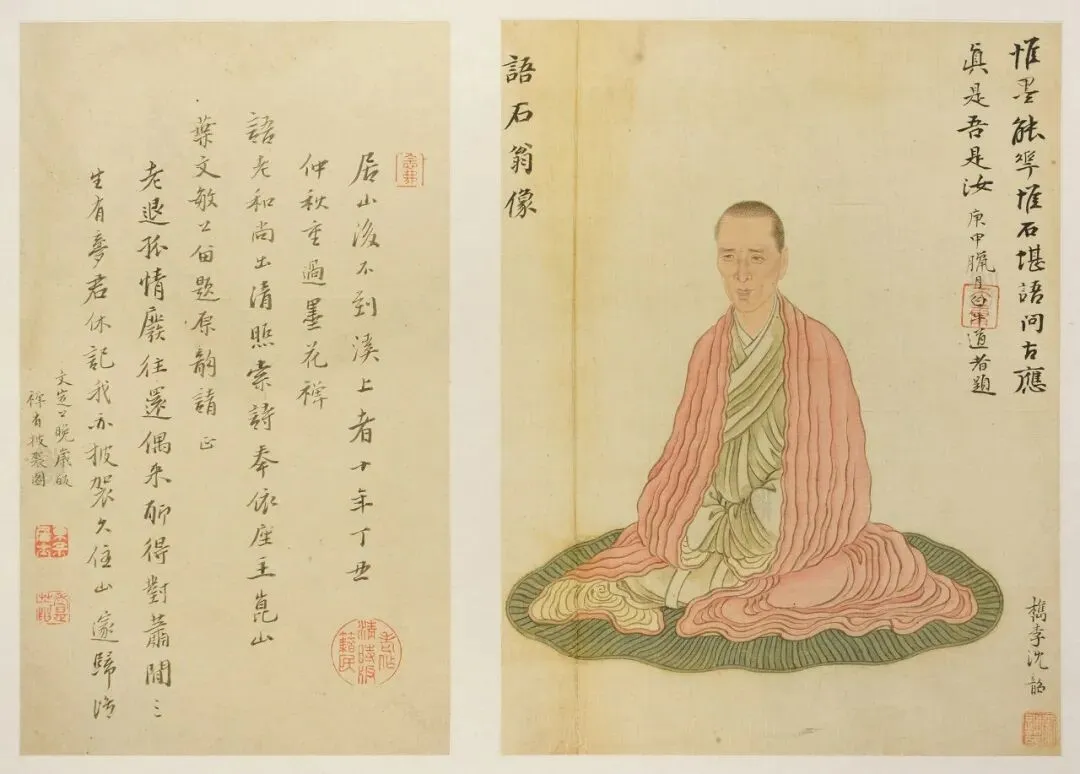 惟墨能惟石堪語问古應
眞是吾是汝 庚申臘月白牛道者題
語石翁像
檇李沈韶
居山後不到溪上者十年丁丑
仲秋重過墨花禪
語老和尚出清照索詩奉依座主崑山
葉文敏公留題原韵請正
老退孤情廢往還偶来聊得對蕭閒三
生有夢君休記我亦披袈久住山
文定公晚歲皈
禪有披袈圖
老作清時版籍民